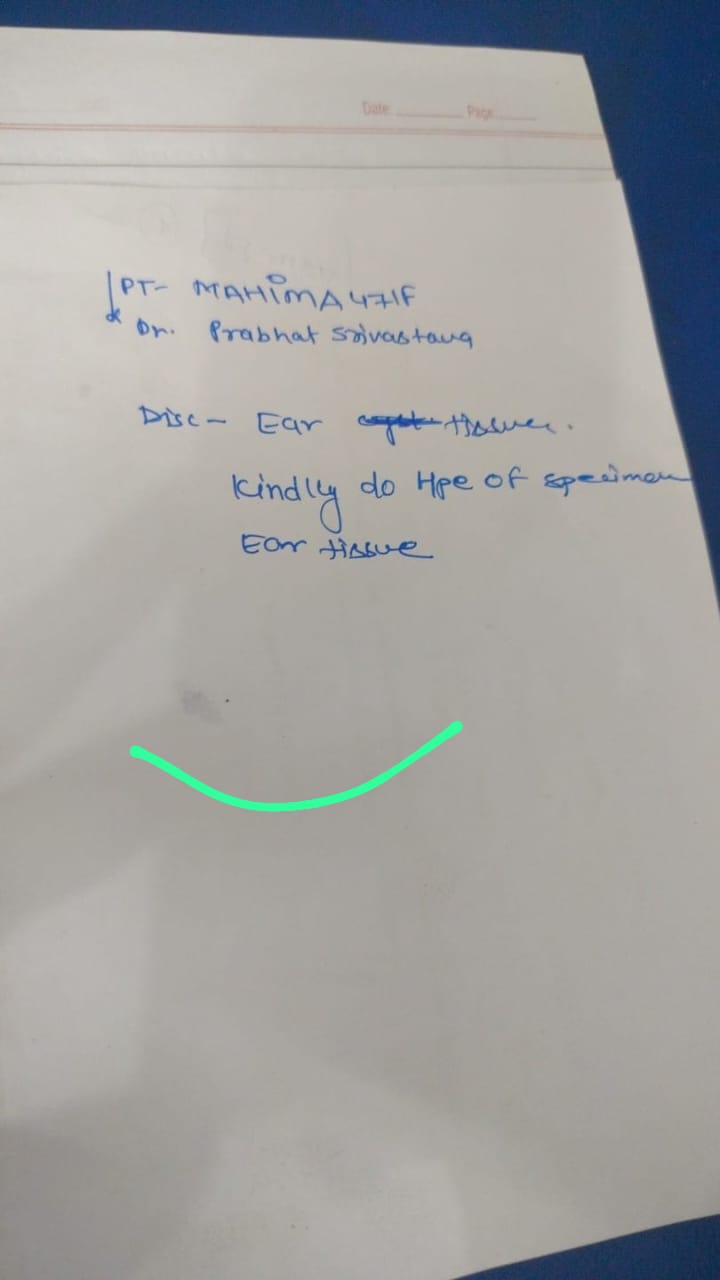 Date ________ Page ______
PT- MAHIMA 47/F
Dr. Prabhat Srivastava
Disc - Ear tissue.
Kindly do Hpe of specimen
Ear tissue